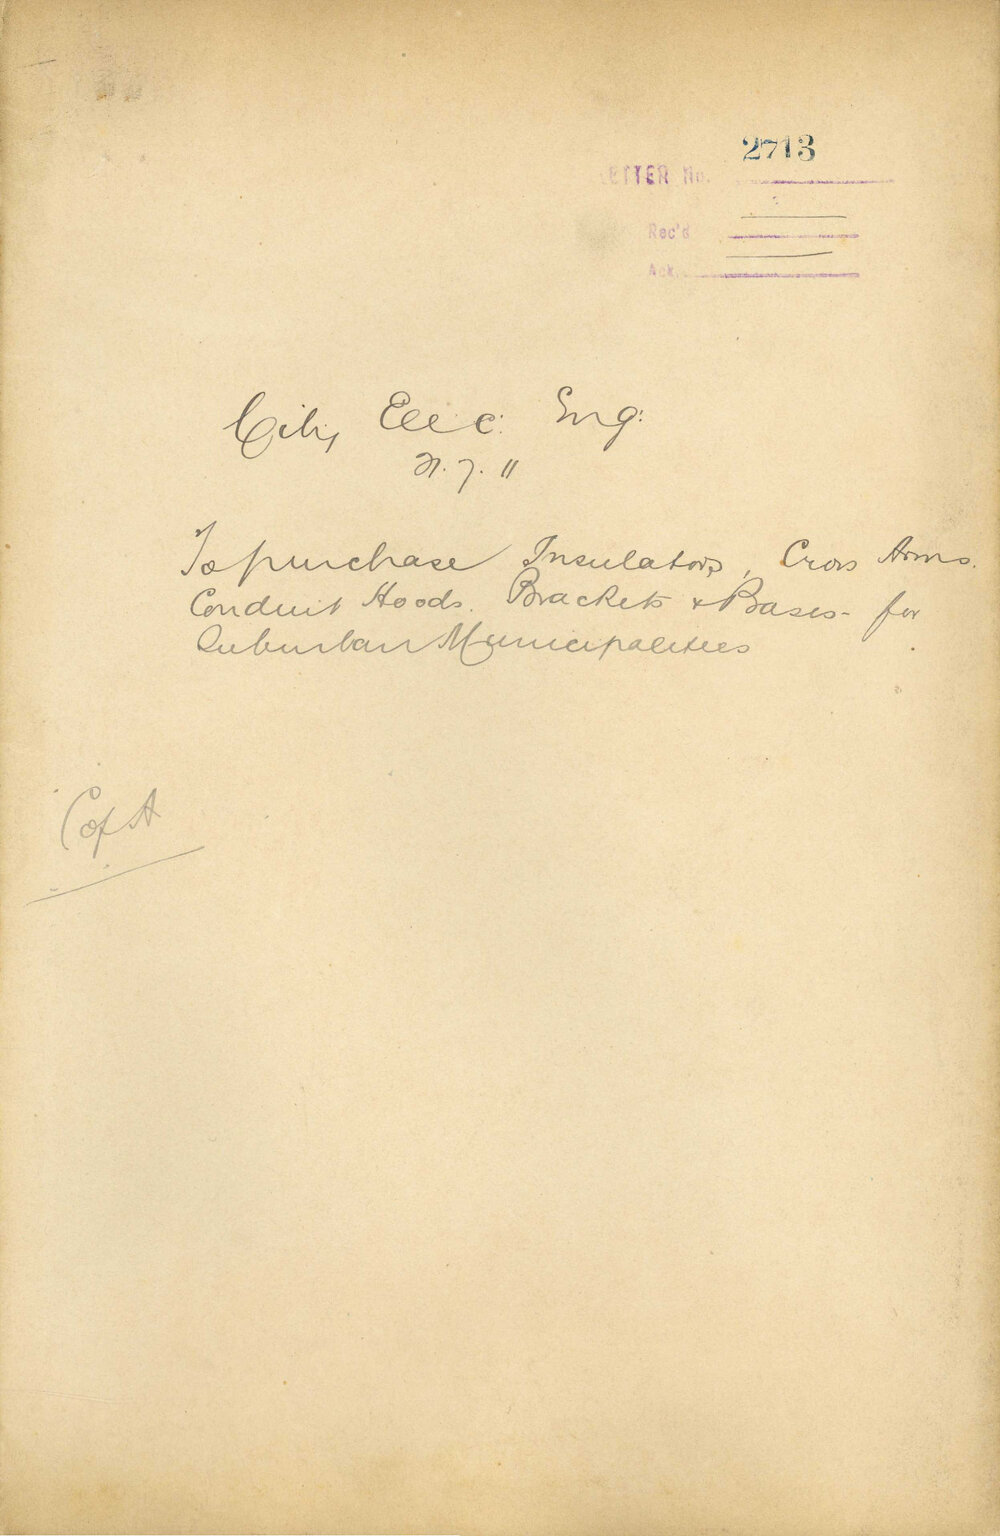 2713
LETTER No.
Rec'd
Ack.
City Elec: Eng:
21. 7. 11
To purchase Insulators, Cross Arms.
Conduit Hoods. Brackets & Bases - for
Suburban Municipalities
C of A